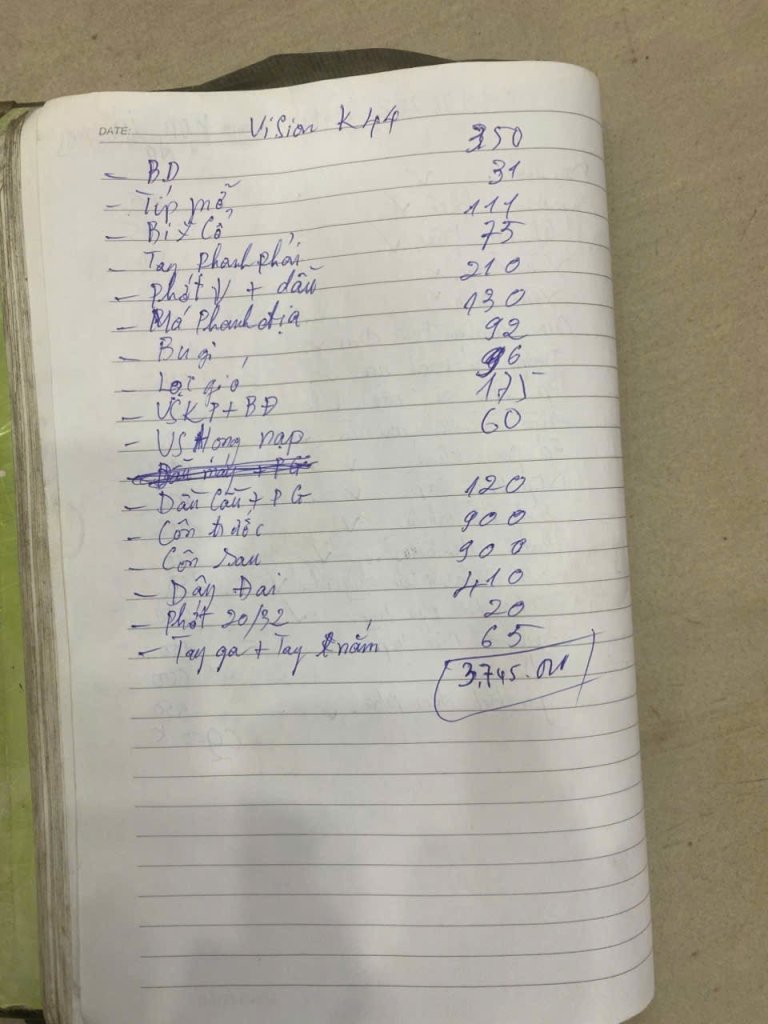 DATE:
Vision K44
- BD 350
- Típ mỡ 31
- Bi + Cổ 111
- Tay phanh phải 75
- phớt V + dầu 210
- Má Phanh đĩa 130
- Bugi 92
- Lọc gió 96
- VSKP + BĐ 175
- VS Hong nạp 60
- Dầu Cầu + PG 120
- Côn trước 900
- Côn sau 900
- Dây Đai 410
- phớt 20/32 20
- Tay ga + Tay nắm 65
3,745.